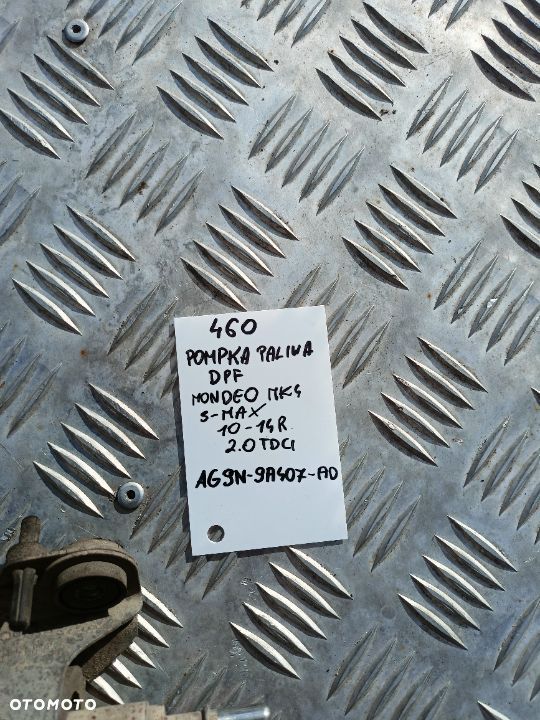 460
POMPKA PALIWA
DPF
MONDEO MK4
S-MAX
10-14R.
2.0 TDCI
AG9N-9A407-AD
OTOMOTO